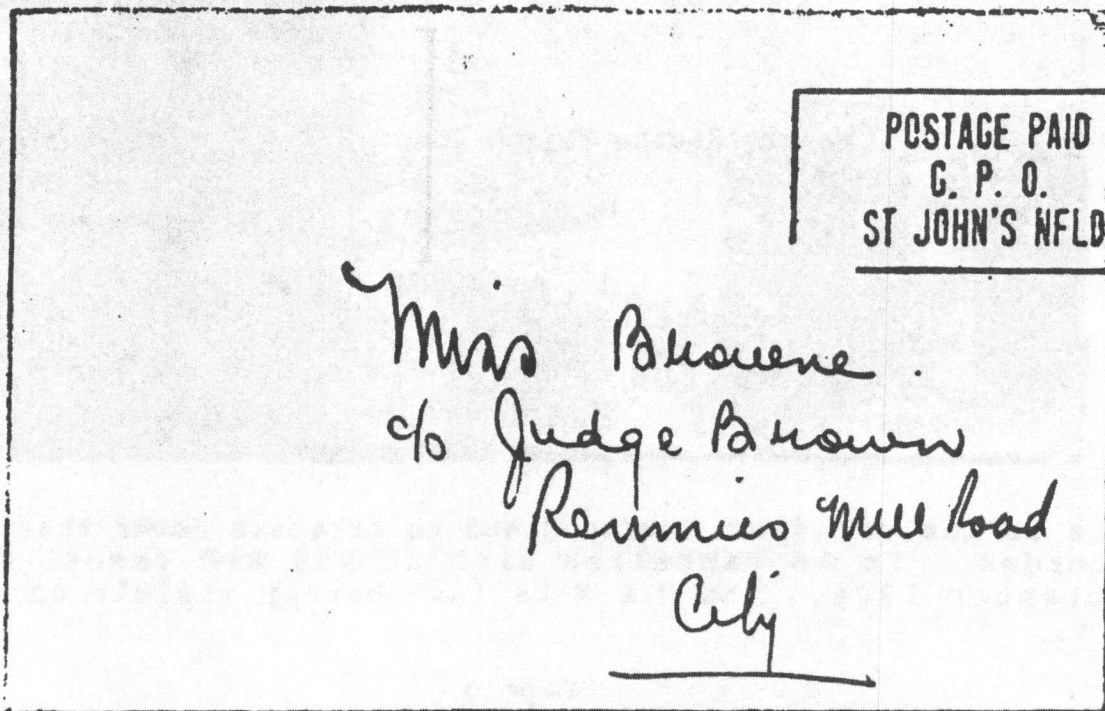 POSTAGE PAID
G. P. O.
ST JOHN'S NFLD
Miss Browne.
c/o Judge Brown
Rennies Mill Road
City